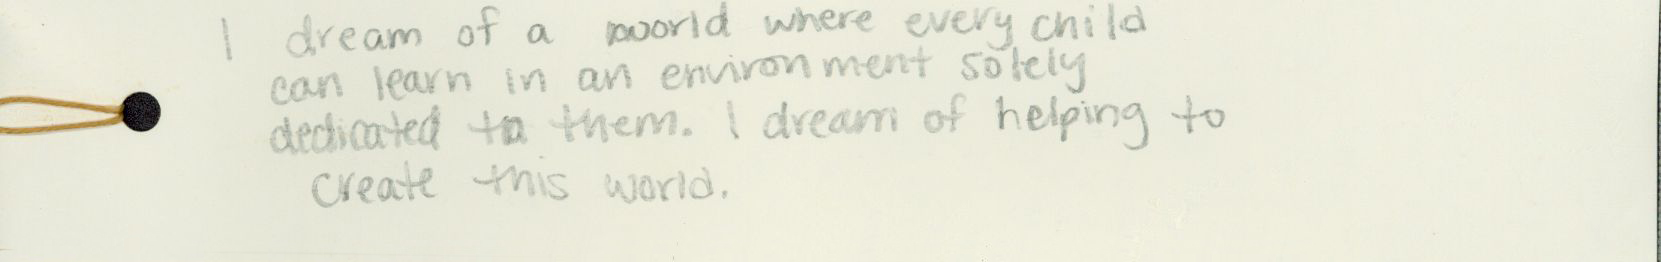 I dream of a world where every child
can learn in an environment solely
dedicated to them. I dream of helping to
create this world.